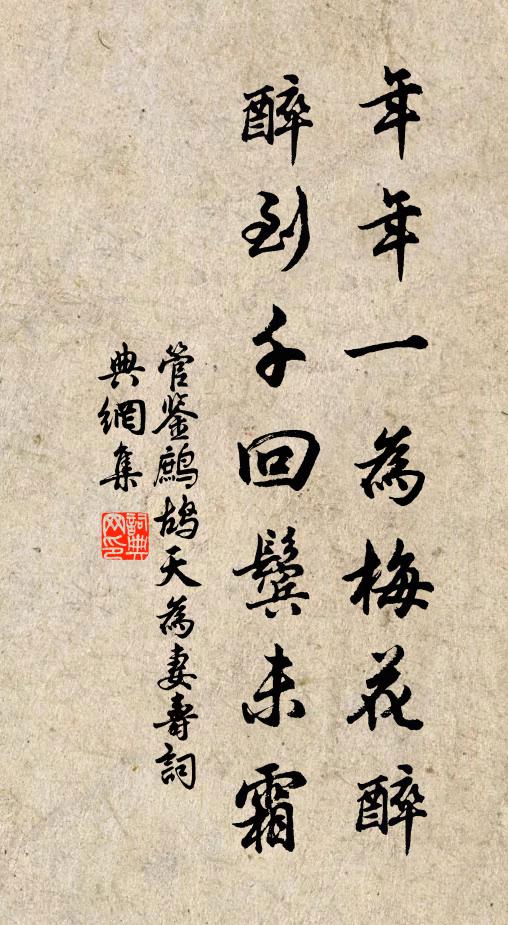 年年一為梅花醉
醉到千回鬢未霜
管鉴鷓鴣天為妻壽詞
典網集
詞典网印